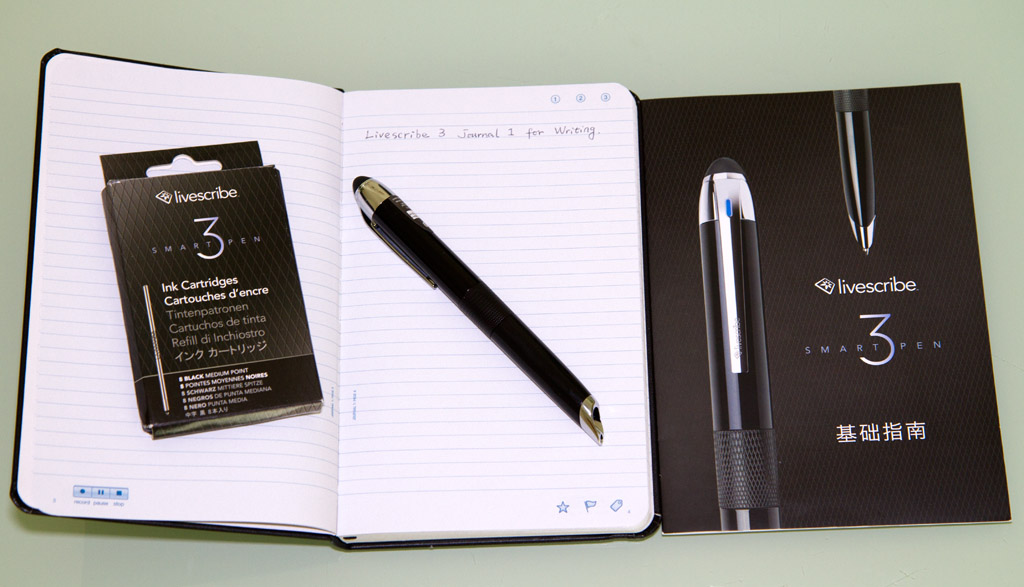 livescribe
3
SMARTPEN
Ink Cartridges
Cartouches d'encre
Tintenpatronen
Cartuchos de tinta
Refill di Inchiostro
インク カートリッジ
8 BLACK MEDIUM POINT
8 POINTES MOYENNES NOIRES
8 SCHWARZ MITTLERE SPITZE
8 NEGROS DE PUNTA MEDIANA
8 NERO PUNTA MEDIA
中字 黒 8本入り
record pause stop
1 2 3
Livescribe 3 Journal 1 for Writing.
livescribe
3
SMARTPEN
基础指南